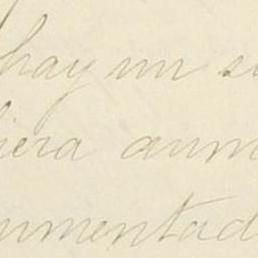 hay un si
iera aum
umentad